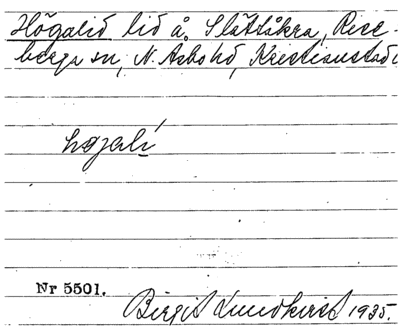 Högalid lid å. Slättåkra, Rise-
berga sn, N. Åsbo hd, Kristianstads
højalí
Nr 5501.
Birgit Lundkvist 1935.